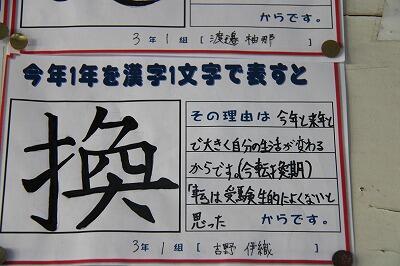 からです。
3年 1組 [渡邊 柚那]
今年1年を漢字1文字で表すと
換
その理由は 今年と来年と
で大きく自分の生活が変わる
からです。(今転換期)
「転」は受験生的によくないと
思った からです。
3年 1組 [吉野 伊織]